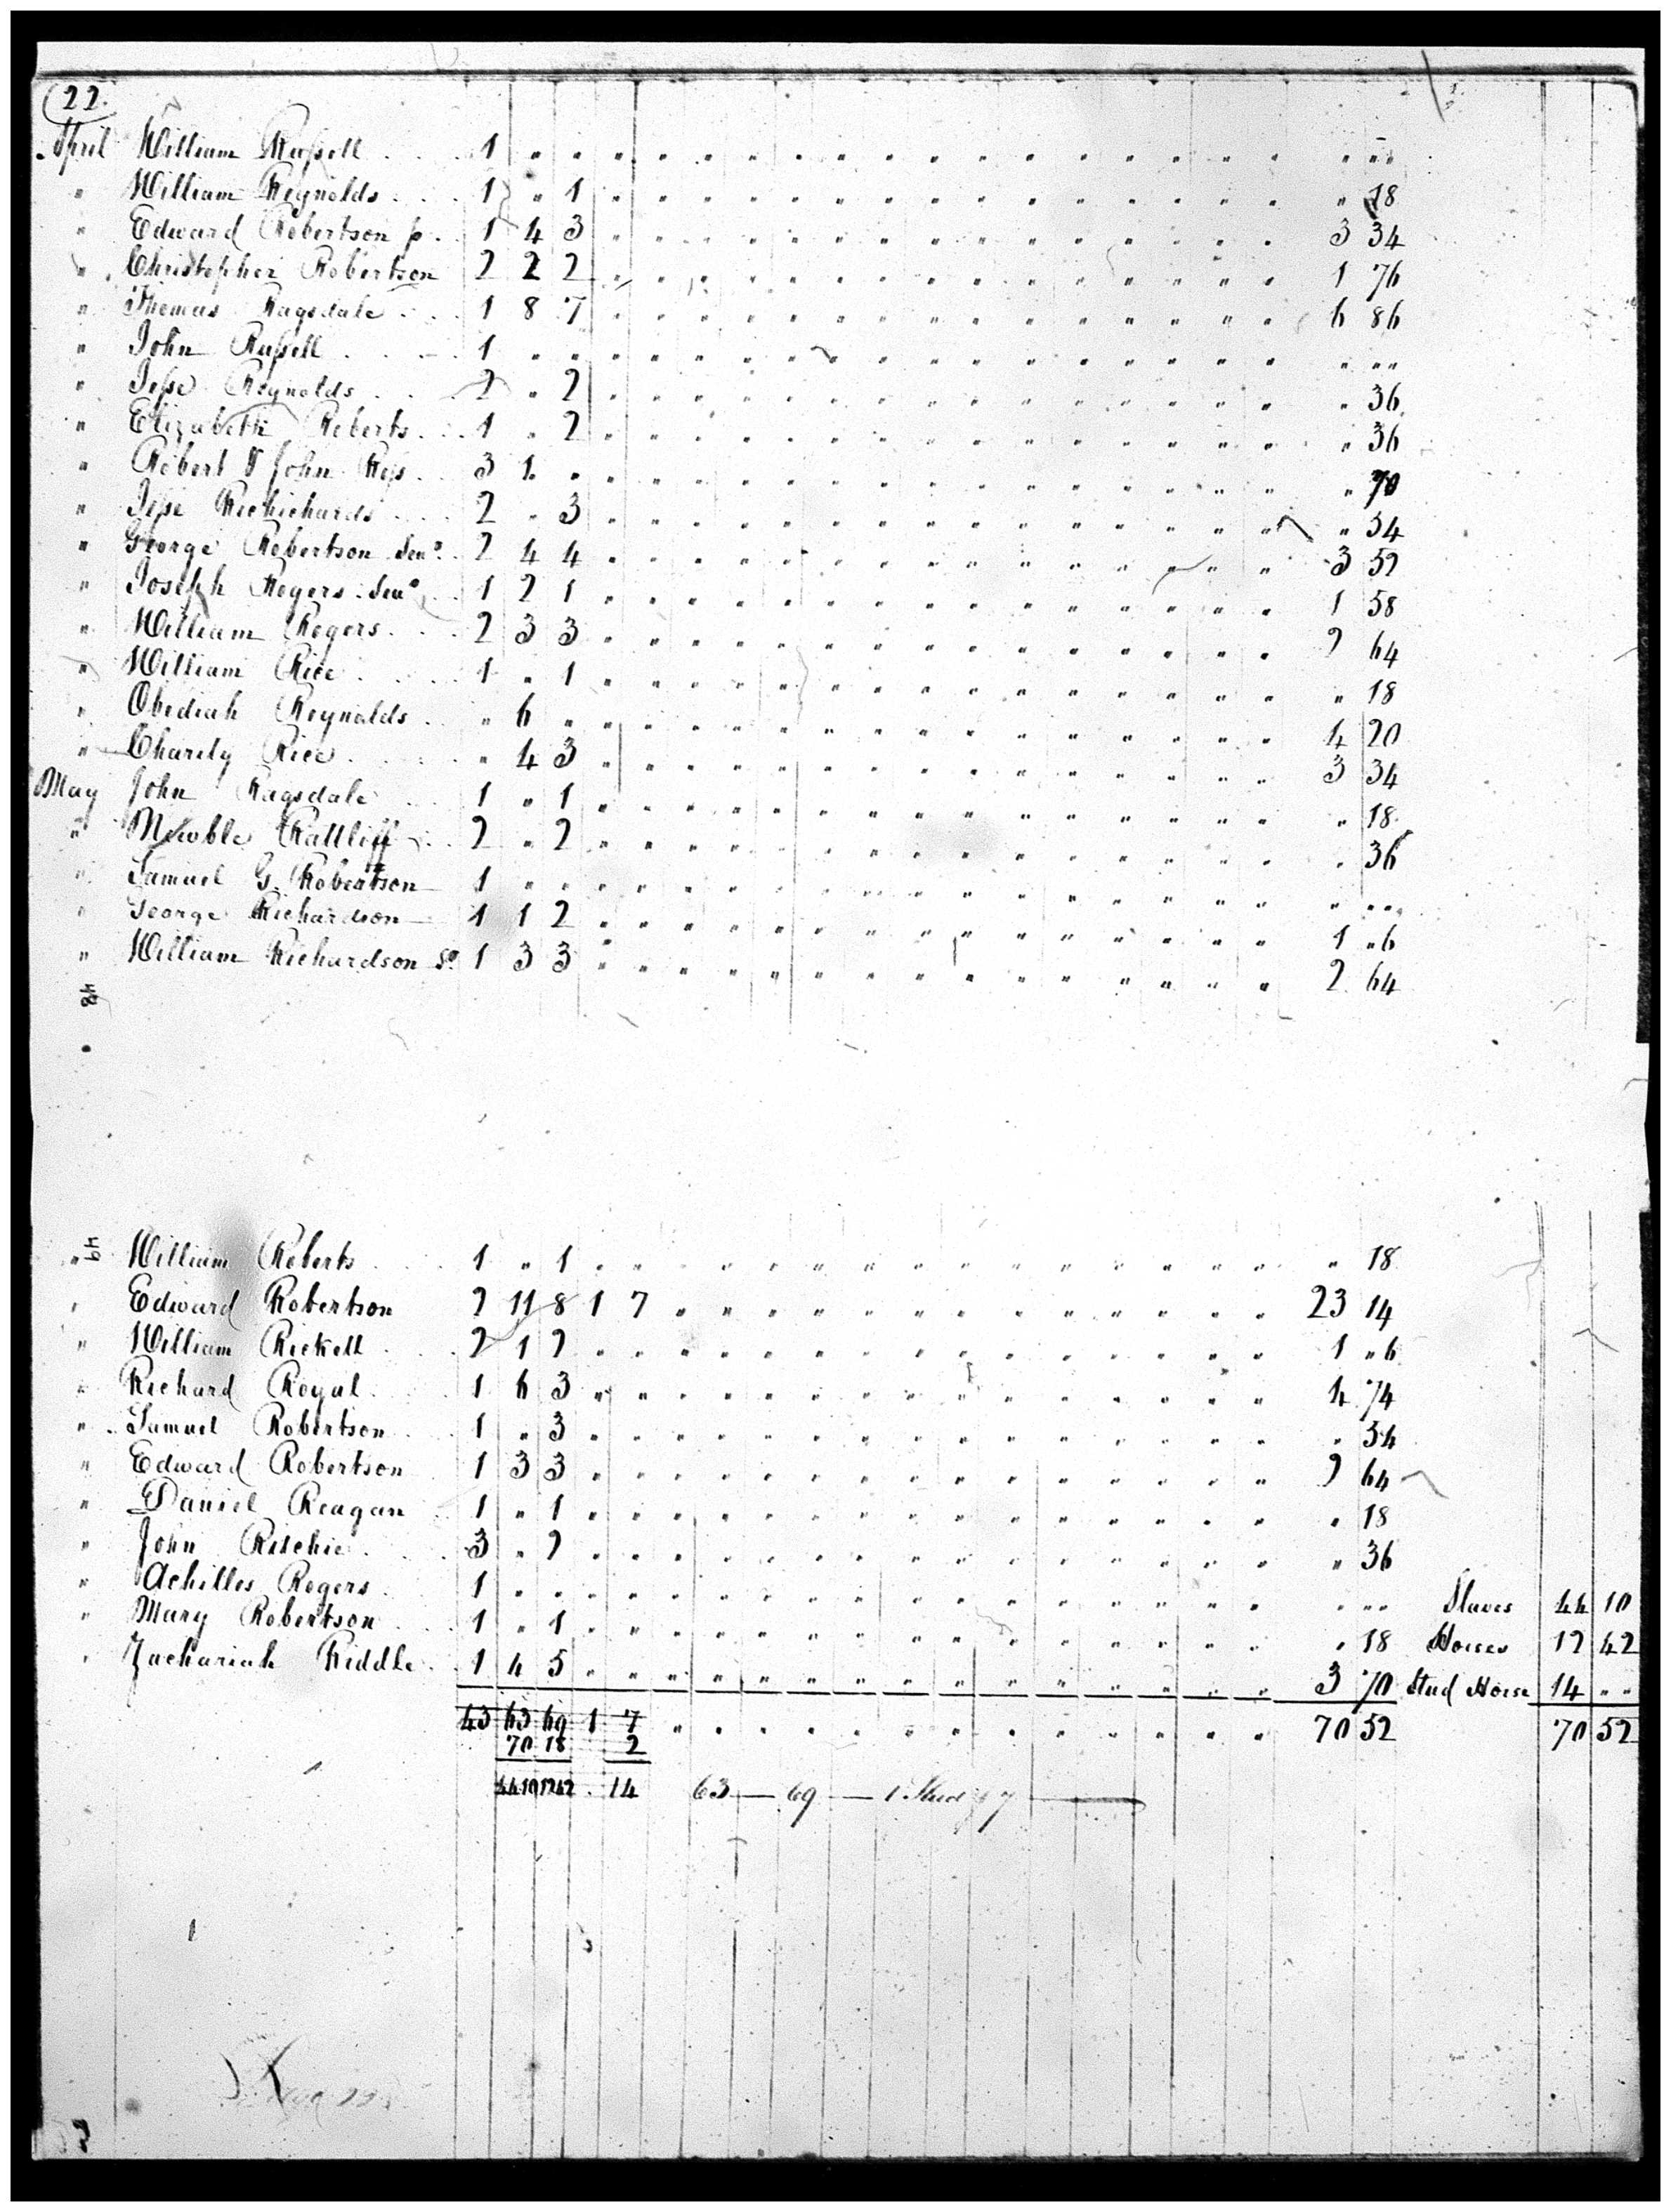 22.
April William Russell 1 " " " " " " " " " " " " " " " " " " " "
" William Reynolds 1 " 1 " " " " " " " " " " " " " " " " " 18
" Edward Robertson p. 1 4 3 " " " " " " " " " " " " " " " " 3 34
" Christopher Robertson 2 2 2 " " " " " " " " " " " " " " " " 1 76
" Thomas Ragsdale 1 8 7 " " " " " " " " " " " " " " " " 6 86
" John Russell 1 " " " " " " " " " " " " " " " " " " " "
" Jesse Reynolds 2 " 2 " " " " " " " " " " " " " " " " " 36
" Elizabeth Roberts 1 " 2 " " " " " " " " " " " " " " " " " 36
" Robert & John Ross 3 1 " " " " " " " " " " " " " " " " " " 70
" Jesse Richichards 2 " 3 " " " " " " " " " " " " " " " " " 54
" George Robertson Senr. 2 4 4 " " " " " " " " " " " " " " " " 3 52
" Joseph Rogers Senr 1 2 1 " " " " " " " " " " " " " " " " 1 58
" William Rogers 2 3 3 " " " " " " " " " " " " " " " " 2 64
" William Rice 1 " 1 " " " " " " " " " " " " " " " " " 18
" Obediah Reynolds " 6 " " " " " " " " " " " " " " " " " 4 20
" Charity Rice " 4 3 " " " " " " " " " " " " " " " " 3 34
May John Ragsdale 1 " 1 " " " " " " " " " " " " " " " " " 18
" Rattliff 2 " 2 " " " " " " " " " " " " " " " " " 36
" Samuel G. Robertson 1 " " " " " " " " " " " " " " " " " " " "
" George Richardson 1 1 2 " " " " " " " " " " " " " " " " 1 " 6
" William Richardson Sr. 1 3 3 " " " " " " " " " " " " " " " " 2 64
48
49
" William Roberts 1 " 1 " " " " " " " " " " " " " " " " " 18
" Edward Robertson 2 11 8 1 7 " " " " " " " " " " " " " " 23 14
" William Rickett 2 1 2 " " " " " " " " " " " " " " " " 1 " 6
" Richard Royal 1 6 3 " " " " " " " " " " " " " " " " 4 74
" Samuel Robertson 1 " 3 " " " " " " " " " " " " " " " " " 54
" Edward Robertson 1 3 3 " " " " " " " " " " " " " " " " 2 64
" Daniel Reagan 1 " 1 " " " " " " " " " " " " " " " " " 18
" John Ritchie 3 " 2 " " " " " " " " " " " " " " " " " 36
" Achilles Rogers 1 " " " " " " " " " " " " " " " " " " " " Slaves 44 10
" Mary Robertson 1 " 1 " " " " " " " " " " " " " " " " " 18 Horses 12 42
" Zachariah Riddle 1 4 5 " " " " " " " " " " " " " " " " 3 70 Stud Horse 14 " "
43 63 69 1 7 " " " " " " " " " " " " " " 70 52 70 52
70 18 2
44 10 12 42 14 63 — 69 — 1 Stud @ 7